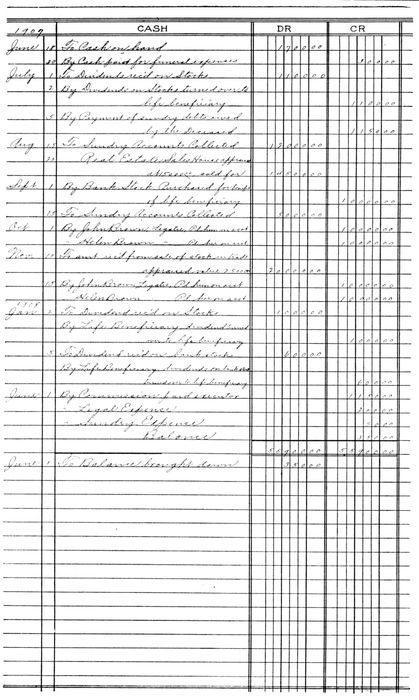 CASH DR CR
1907
June 18 To Cash on hand 170000
30 By Cash paid for funeral expenses 30000
July 1 To Dividends rec'd on Stocks 110000
2 By Dividends on Stocks turned over to
life beneficiary 110000
5 By Payment of sundry debts owed
by the Deceased 115000
Aug 15 To Sundry Accounts Collected 1200000
Real Estate Sales House
sold for 1450000
Sept 1 By Bank Stock Purchased for
of life beneficiary 1000000
To Sundry Accounts Collected 500000
Oct 1 By John Brown, Legatee, 1000000
" Helen Brown " 1000000
Nov To amt rec'd from sale of stock in trade
appraised value 2000000
By John Brown, Legatee, 1000000
" Helen Brown 1000000
1908
Jan 2 To Dividend rec'd on Stocks 100000
By Life Beneficiary dividend turned
over to life beneficiary 100000
5 To Dividend rec'd on bank stocks 60000
By Life Beneficiary dividends on
turned over to life beneficiary 60000
June 1 By Commission paid executor
" Legal Expense
" Sundry Expense
Balance 35000
5590000 5590000
June 1 To Balance brought down 35000